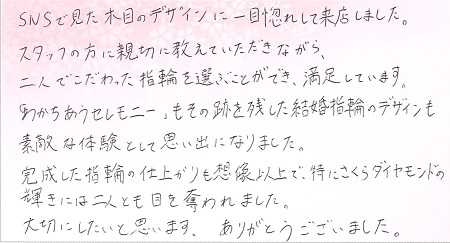 SNSで見た木目のデザインに一目惚れして来店しました。
スタッフの方に親切に教えていただきながら、
二人でこだわった指輪を選ぶことができ、満足しています。
「わかちあうセレモニー」もその跡を残した結婚指輪のデザインも
素敵な体験として思い出になりました。
完成した指輪の仕上がりも想像以上で、特にさくらダイヤモンドの
輝きには二人とも目を奪われました。
大切にしたいと思います。 ありがとうございました。